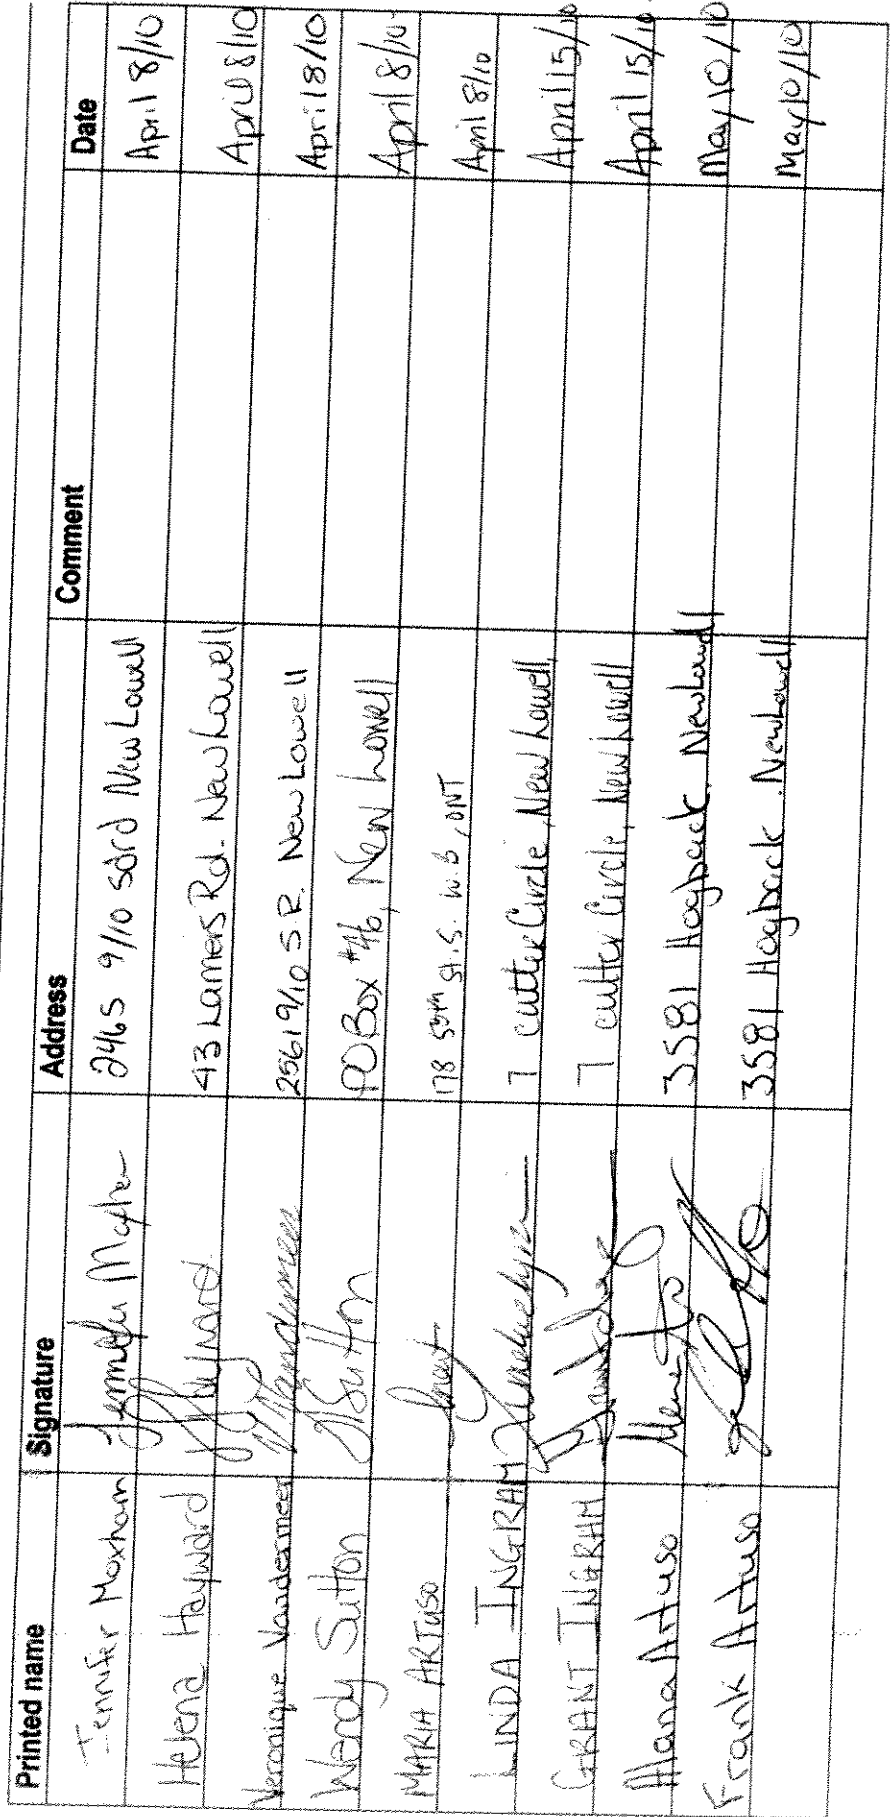 Printed name Signature Address Comment Date
Jennifer Moxham 2465 9/10 sdrd New Lowell April 8/10
Helena Hayward Hayward 43 Lamers Rd. New Lowell April 8/10
Veronique Vandermeer Vandermeer 2561 9/10 S.R. New Lowell April 8/10
Wendy Sutton WSutton PO Box #46, New Lowell April 8/10
MARIA ARTUSO 178 St. S. W.B, ONT April 8/10
LINDA INGRAM 7 cutter Circle, New Lowell, April 15/10
GRANT INGRAM 7 cutter Circle, New Lowell April 15/10
Alana Artuso 3581 Hogback. New Lowell May 10/10
Frank Artuso 3581 Hogback. New Lowell May 10/10